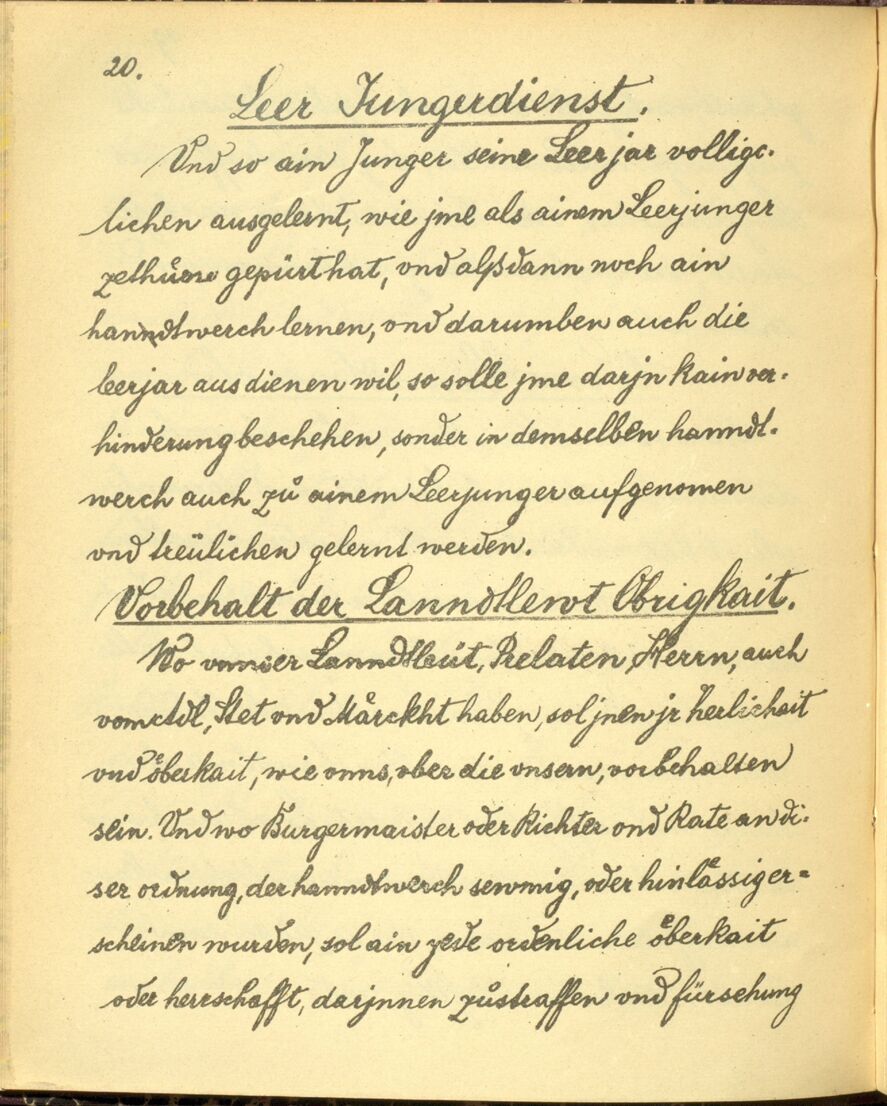 20.
Leer Jungerdienst.
Und so ain Junger seine Leerjar volligc-
lichen ausgelernt, wie jme als ainem Leerjunger
zethůnn gepürt hat, vnd alßdann noch ain
hanndtwerch lernen, vnd darumben auch die
leerjar ausdienen wil, so solle jme darjn kain ver-
hinderung beschehen, sonder in demselben hanndt-
werch auch zů ainem Leerjunger aufgenomen
vnd treülichen gelernt werden.
Vorbehalt der Lanndtlewt Obrigkait.
Wo vnnser Lanndtleüt, Prelaten, Herrn, auch
vom Adl, Stet vnd Märckht haben, sol jnen jr herlichait
vnd öberkait, wie vnns, vber die vnsern, vorbehalten
sein. Und wo Burgermaister oder Richter vnd Rate an di-
ser ordnung, der hanndtwerch sewmig, oder hinlässig er=
scheinen wurden, sol ain yede ordenliche öberkait
oder herrschafft, darjnnen zůstraffen vnd fürsehung